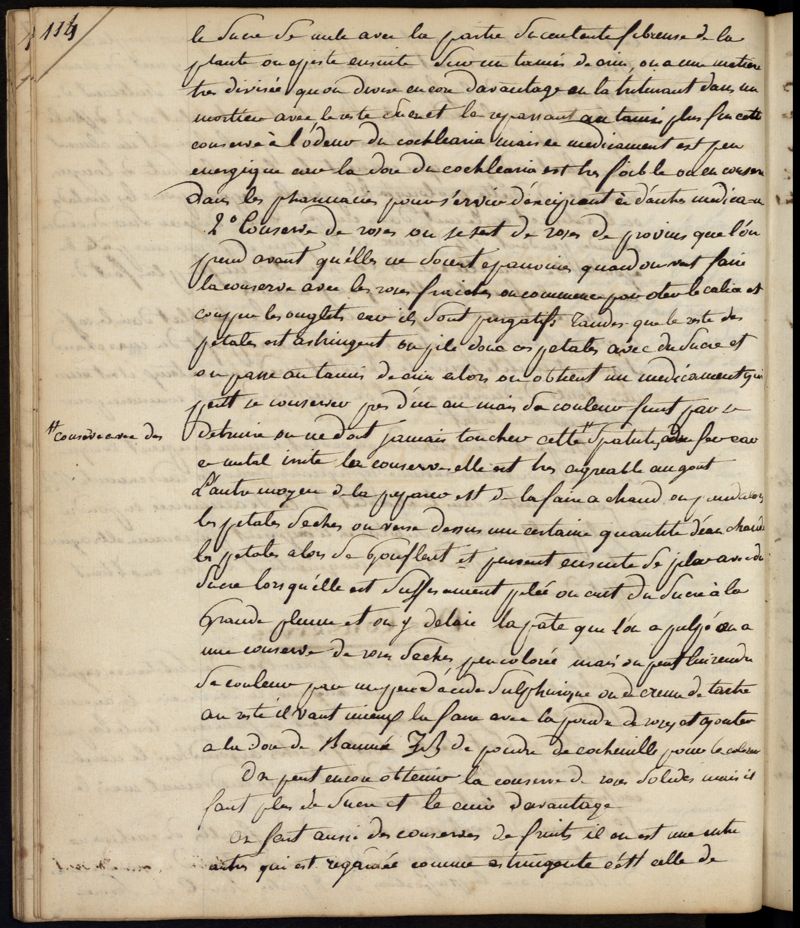 114
le sucre se mele avec la partie succulente fibreuse de la
plante on ajoute ensuite sur un tamis de crin, on a une matiere
tres divisée qu'on divise encore davantage en la triturant dans un
mortier avec le reste sucre et le repassant au tamis plus fin cette
conserve à l'odeur du cochlearia mais ce medicament est peu
energique car la dose du cochlearia est tres foible on en conserve
dans les pharmacies pour servir d'excipient à d'autres medica-
2° Conserve de roses on se sert de roses de provins que l'on
prend avant qu'elles ne soient epanouies quand on veut faire
la conserve avec les roses fraiches on commence par oter le calice et
couper les onglets car ils sont purgatifs tandis que le reste des
petales est astringent on pile donc ces petales avec du sucre et
on passe au tamis de crin alors on obtient un medicament qui
peut se conserver pres d'un an mais sa couleur finit par se
# conserve avec des
detruire on ne doit jamais toucher cette # spatules de fer car
ce metal irrite la conserve elle est tres agreable au gout
L'autre moyen de la preparer est de la faire a chaud on prend alors
les petales seches on verse dessus une certaine quantité d'eau chaude
les petales alors se gonflent et peuvent ensuite se piler avec du
sucre lorsqu'elle est suffisament pilée on cuit du sucre à la
grande plume et on y delaie la pate que l'on a pulpé on a
une conserve de roses seches peu colorée mais on peut lui rendre
sa couleur par un peu d'acide sulphurique ou de creme de tartre
au reste il vaut mieux la faire avec la poudre de roses et ajouter
a la dose de Baumé de poudre de cochenille pour la colorer
On peut encore obtenir la conserve de roses solides mais il
faut plus de sucre et le cuire d'avantage
On fait aussi des conserves de fruits il en est une entre
autres qui est regardée comme astringente c'est celle de